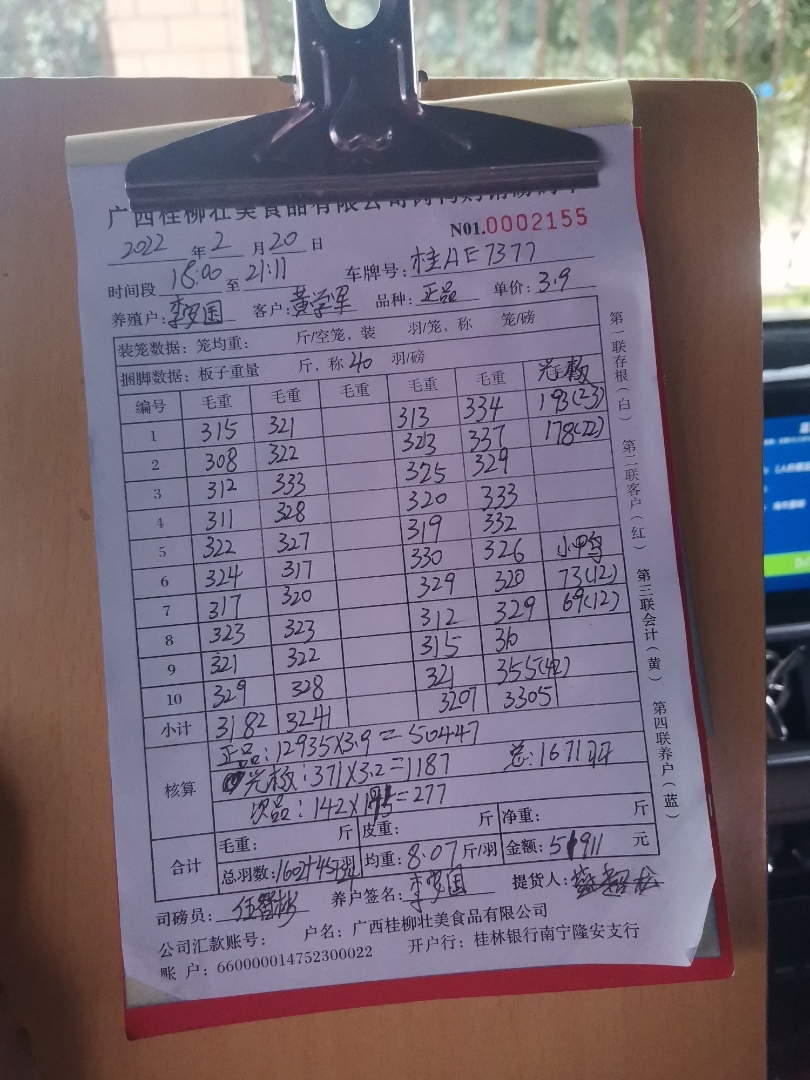 广西桂柳壮美食品有限公司
N01.0002155
2022年2月20日
时间段 18:00 至 21:11 车牌号: 桂AE7377
养殖户: 李罗国 客户: 黄学军 品种: 正品 单价: 3.9
装笼数据: 笼均重: 斤/空笼, 装 羽/笼, 称 笼/磅
捆脚数据: 板子重量 斤, 称40 羽/磅
编号 毛重 毛重 毛重 毛重 毛重 光板
1 315 321 313 334 193(23)
2 308 322 323 337 178(22)
3 312 333 325 329
4 311 328 320 333
5 322 327 319 332
6 324 317 330 326 小鸭
7 317 320 329 320 73(12)
8 323 323 312 329 69(12)
9 321 322 315 310
10 329 328 321 355(42)
小计 3182 3241 3207 3305
核算
正品: 12935×3.9=50447
光板: 371×3.2=1187 总: 1671羽
次品: 142×1.95=277
合计
毛重: 斤 皮重: 斤 净重: 斤
总羽数: 1602+45 均重: 8.07斤/羽 金额: 51911 元
司磅员: 养户签名: 李罗国 提货人:
公司汇款账号: 户名: 广西桂柳壮美食品有限公司
账 户: 660000014752300022 开户行: 桂林银行南宁隆安支行
第一联存根(白) 第二联客户(红) 第三联会计(黄) 第四联养户(蓝)